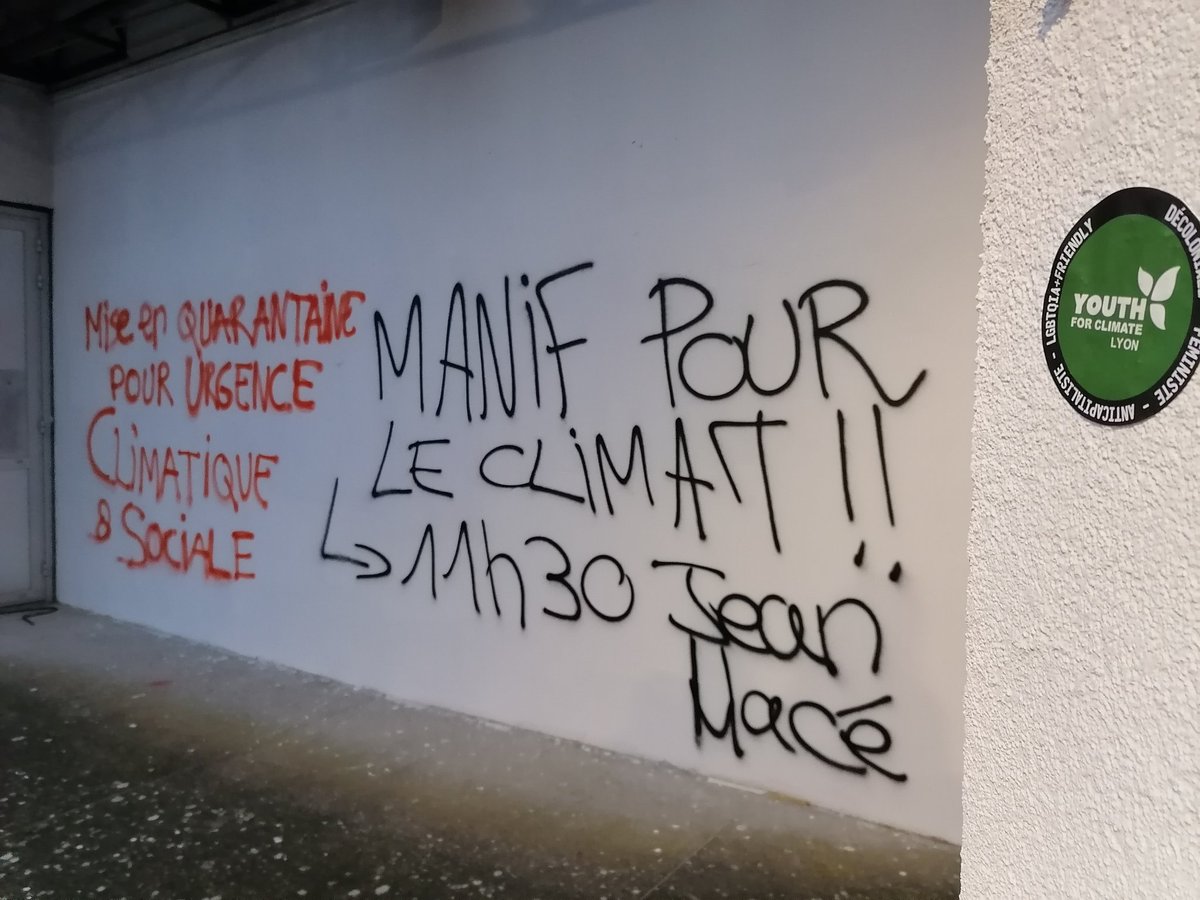 Mise en QUARANTAINE
POUR URGENCE
CLIMATIQUE
& SOCIALE
MANIF POUR
LE CLIMAT !!
↳ 11h30 Jean
Macé
YOUTH
FOR CLIMATE
LYON
FÉMINISTE - ANTICAPITALISTE - LGBTQIA+FRIENDLY